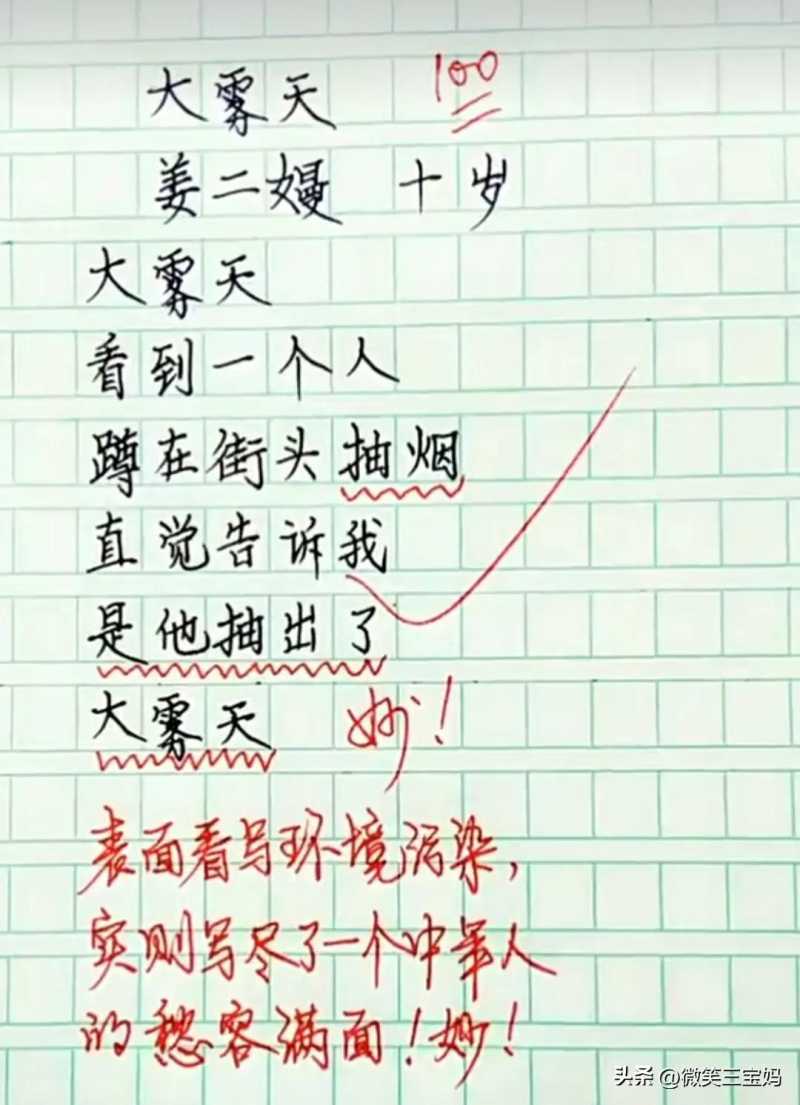 大雾天 100
姜二嫚 十岁
大雾天
看到一个人
蹲在街头抽烟
直觉告诉我
是他抽出了
大雾天 妙！
表面看写环境污染，
实则写尽了一个中年人
的愁容满面！妙！
头条 @微笑三宝妈